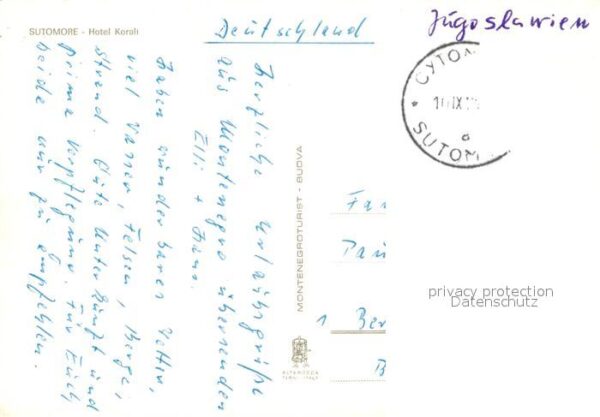 SUTOMORE - Hotel Korali
Deutschland
Jugoslawien
СУТОМ
1 IX
SUTOM
Herzliche Urlaubsgrüße
aus Montenegro übersenden
Zili + Franz.
Haben wunderbares Wetter,
viel Wasser, Felsen, Berge,
Strand. Gute Unterkunft und
prima Verpflegung. Für Euch
beide nur zu empfehlen.
MONTENEGROTURIST - BUDVA
Fa
Pa
1 Ber
B
privacy protection
Datenschutz